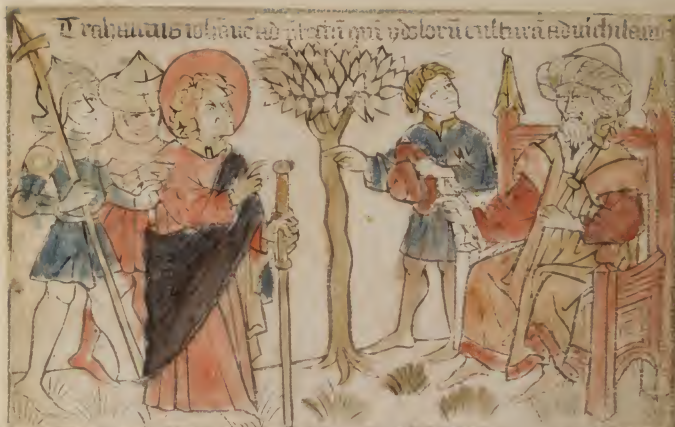 Trahamus ioh̄anē ad p̄fectū qui ydolorū culturā adnichilaui